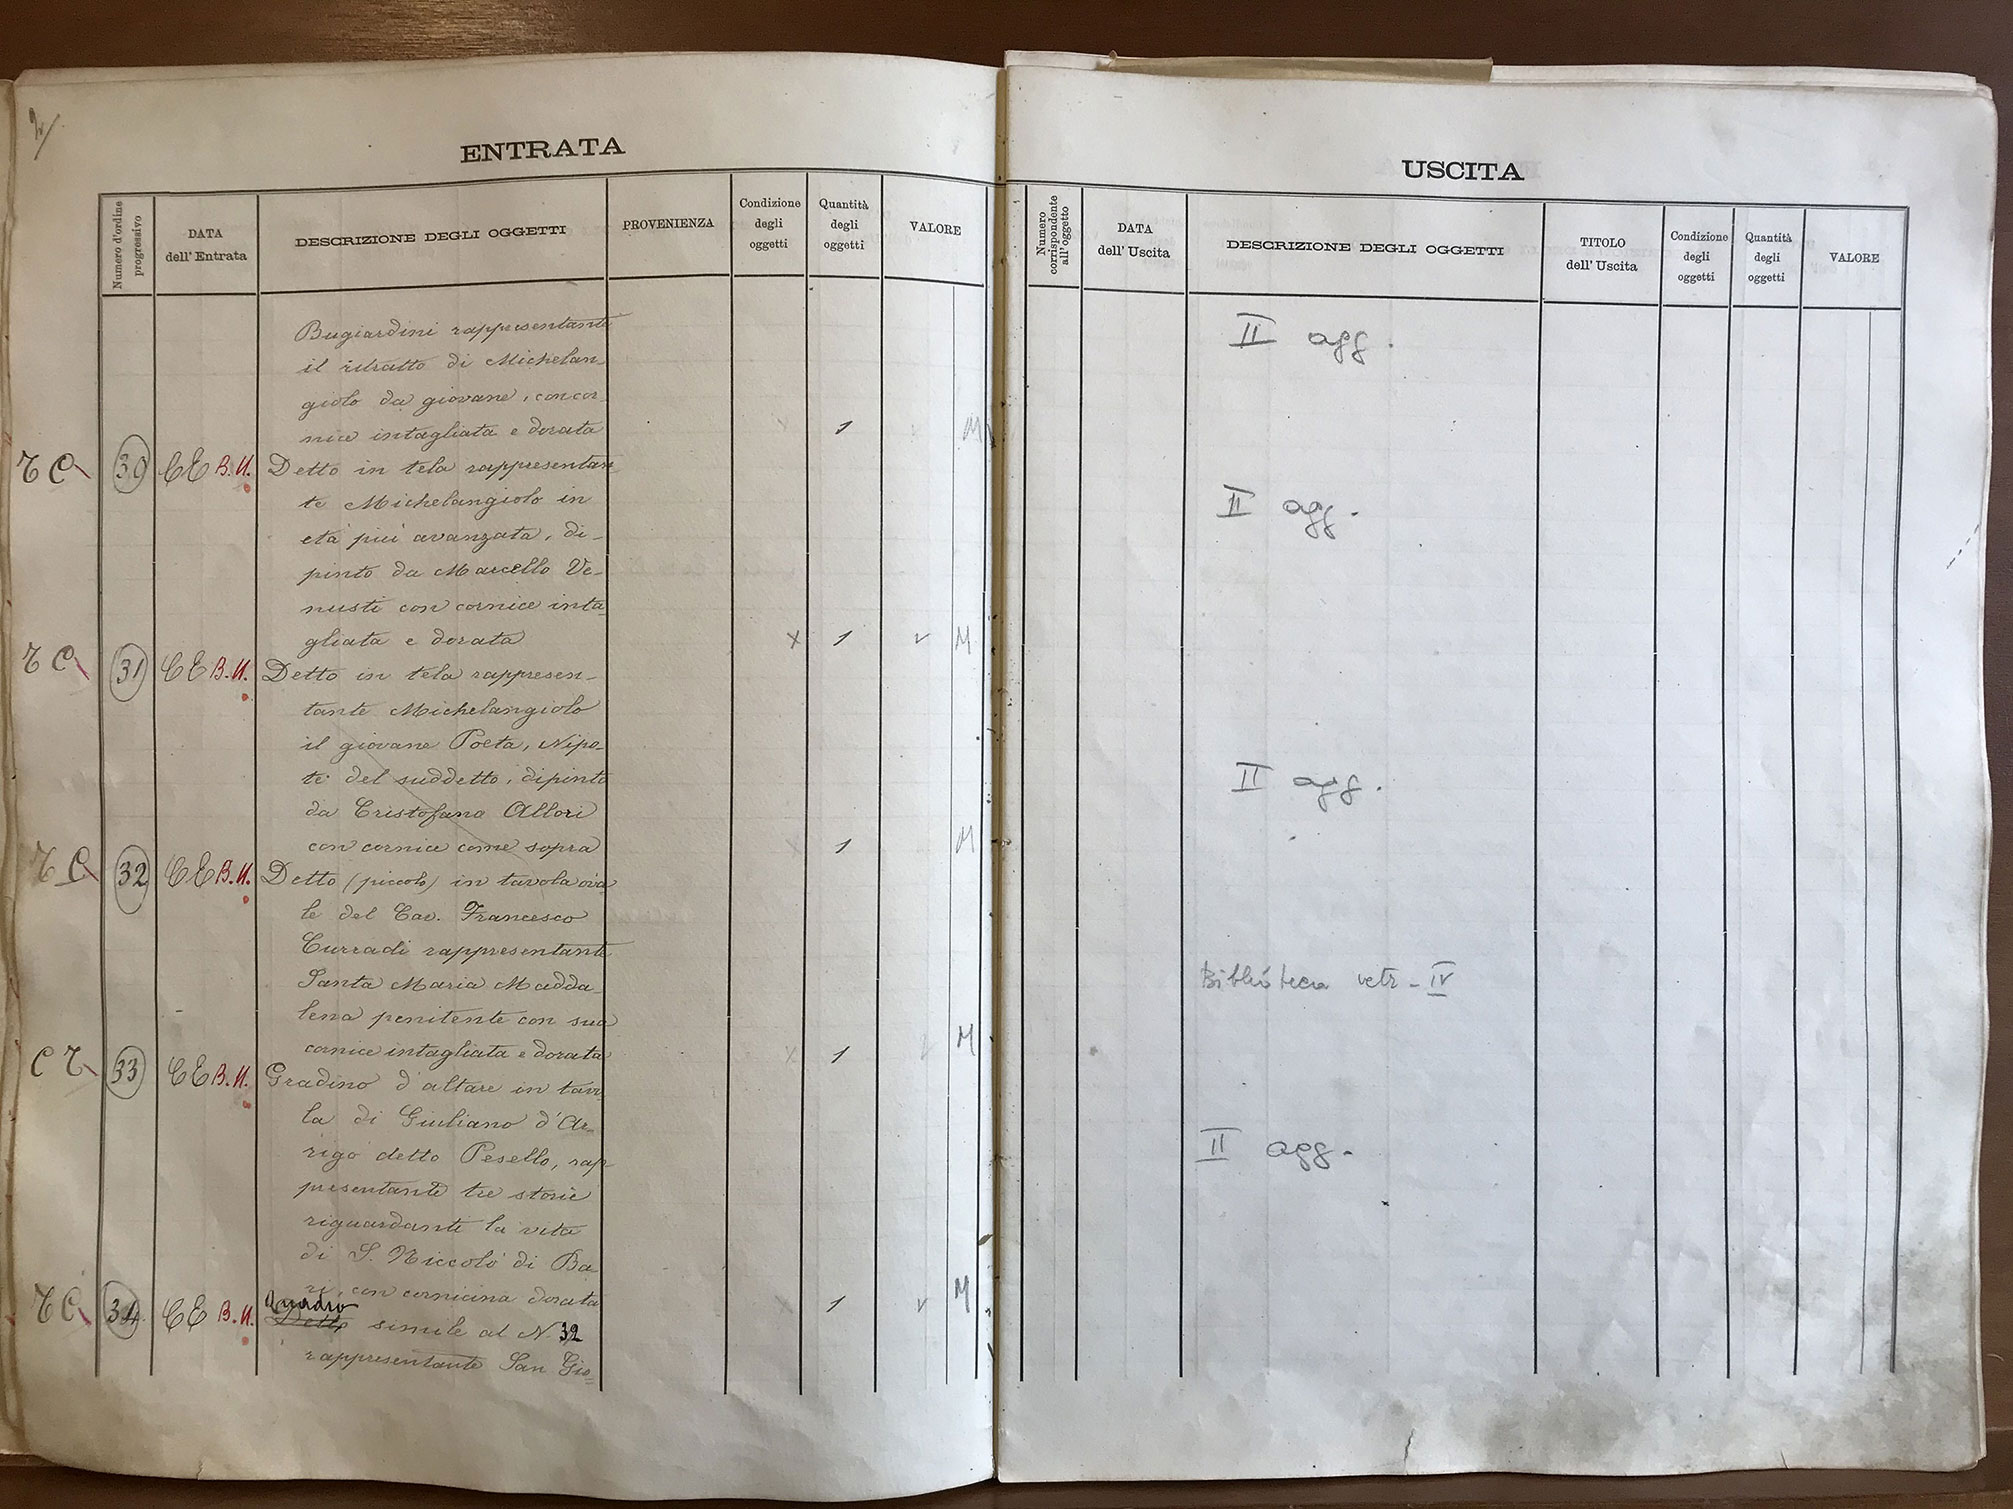 2/
ENTRATA
Numero d'ordine progressivo
DATA dell' Entrata
DESCRIZIONE DEGLI OGGETTI
PROVENIENZA
Condizione degli oggetti
Quantità degli oggetti
VALORE
Bugiardini rappresentante
il ritratto di Michelan
giolo da giovane, con cor
nice intagliata e dorata 1 M
TC 30 CE B.U. Detto in tela rappresentan
te Michelangiolo in
età più avanzata, di-
pinto da Marcello Ve-
nusti con cornice inta
gliata e dorata x 1 v M
TC 31 CE B.U. Detto in tela rappresen-
tante Michelangiolo
il giovane Poeta, Nipo-
te del suddetto, dipinto
da Cristofano Allori
con cornice come sopra x 1 M
TC 32 CE B.U. Detto (piccolo) in tavola ova
le del Cav. Francesco
Curradi rappresentante
Santa Maria Madda-
lena penitente con sua
cornice intagliata e dorata x 1 v M
CT 33 CE B.U. Gradino d'altare in tavo
la di Giuliano d'Ar-
rigo detto Pesello, rap
presentante tre storie
riguardanti la vita
di S. Niccolò di Ba
ri, con cornicina dorata 1 v M
Quadro
TC 34 CE B.U. Detto simile al N. 32
rappresentante San Gio=
USCITA
Numero corrispondente all'oggetto
DATA dell' Uscita
DESCRIZIONE DEGLI OGGETTI
TITOLO dell' Uscita
Condizione degli oggetti
Quantità degli oggetti
VALORE
II agg.
II agg.
II agg.
Biblioteca vetr - IV
II agg.